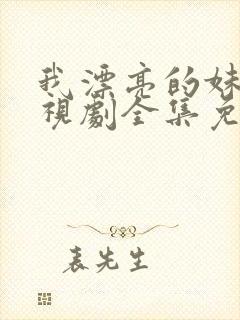 我漂亮的妹
視劇全集免
表先生